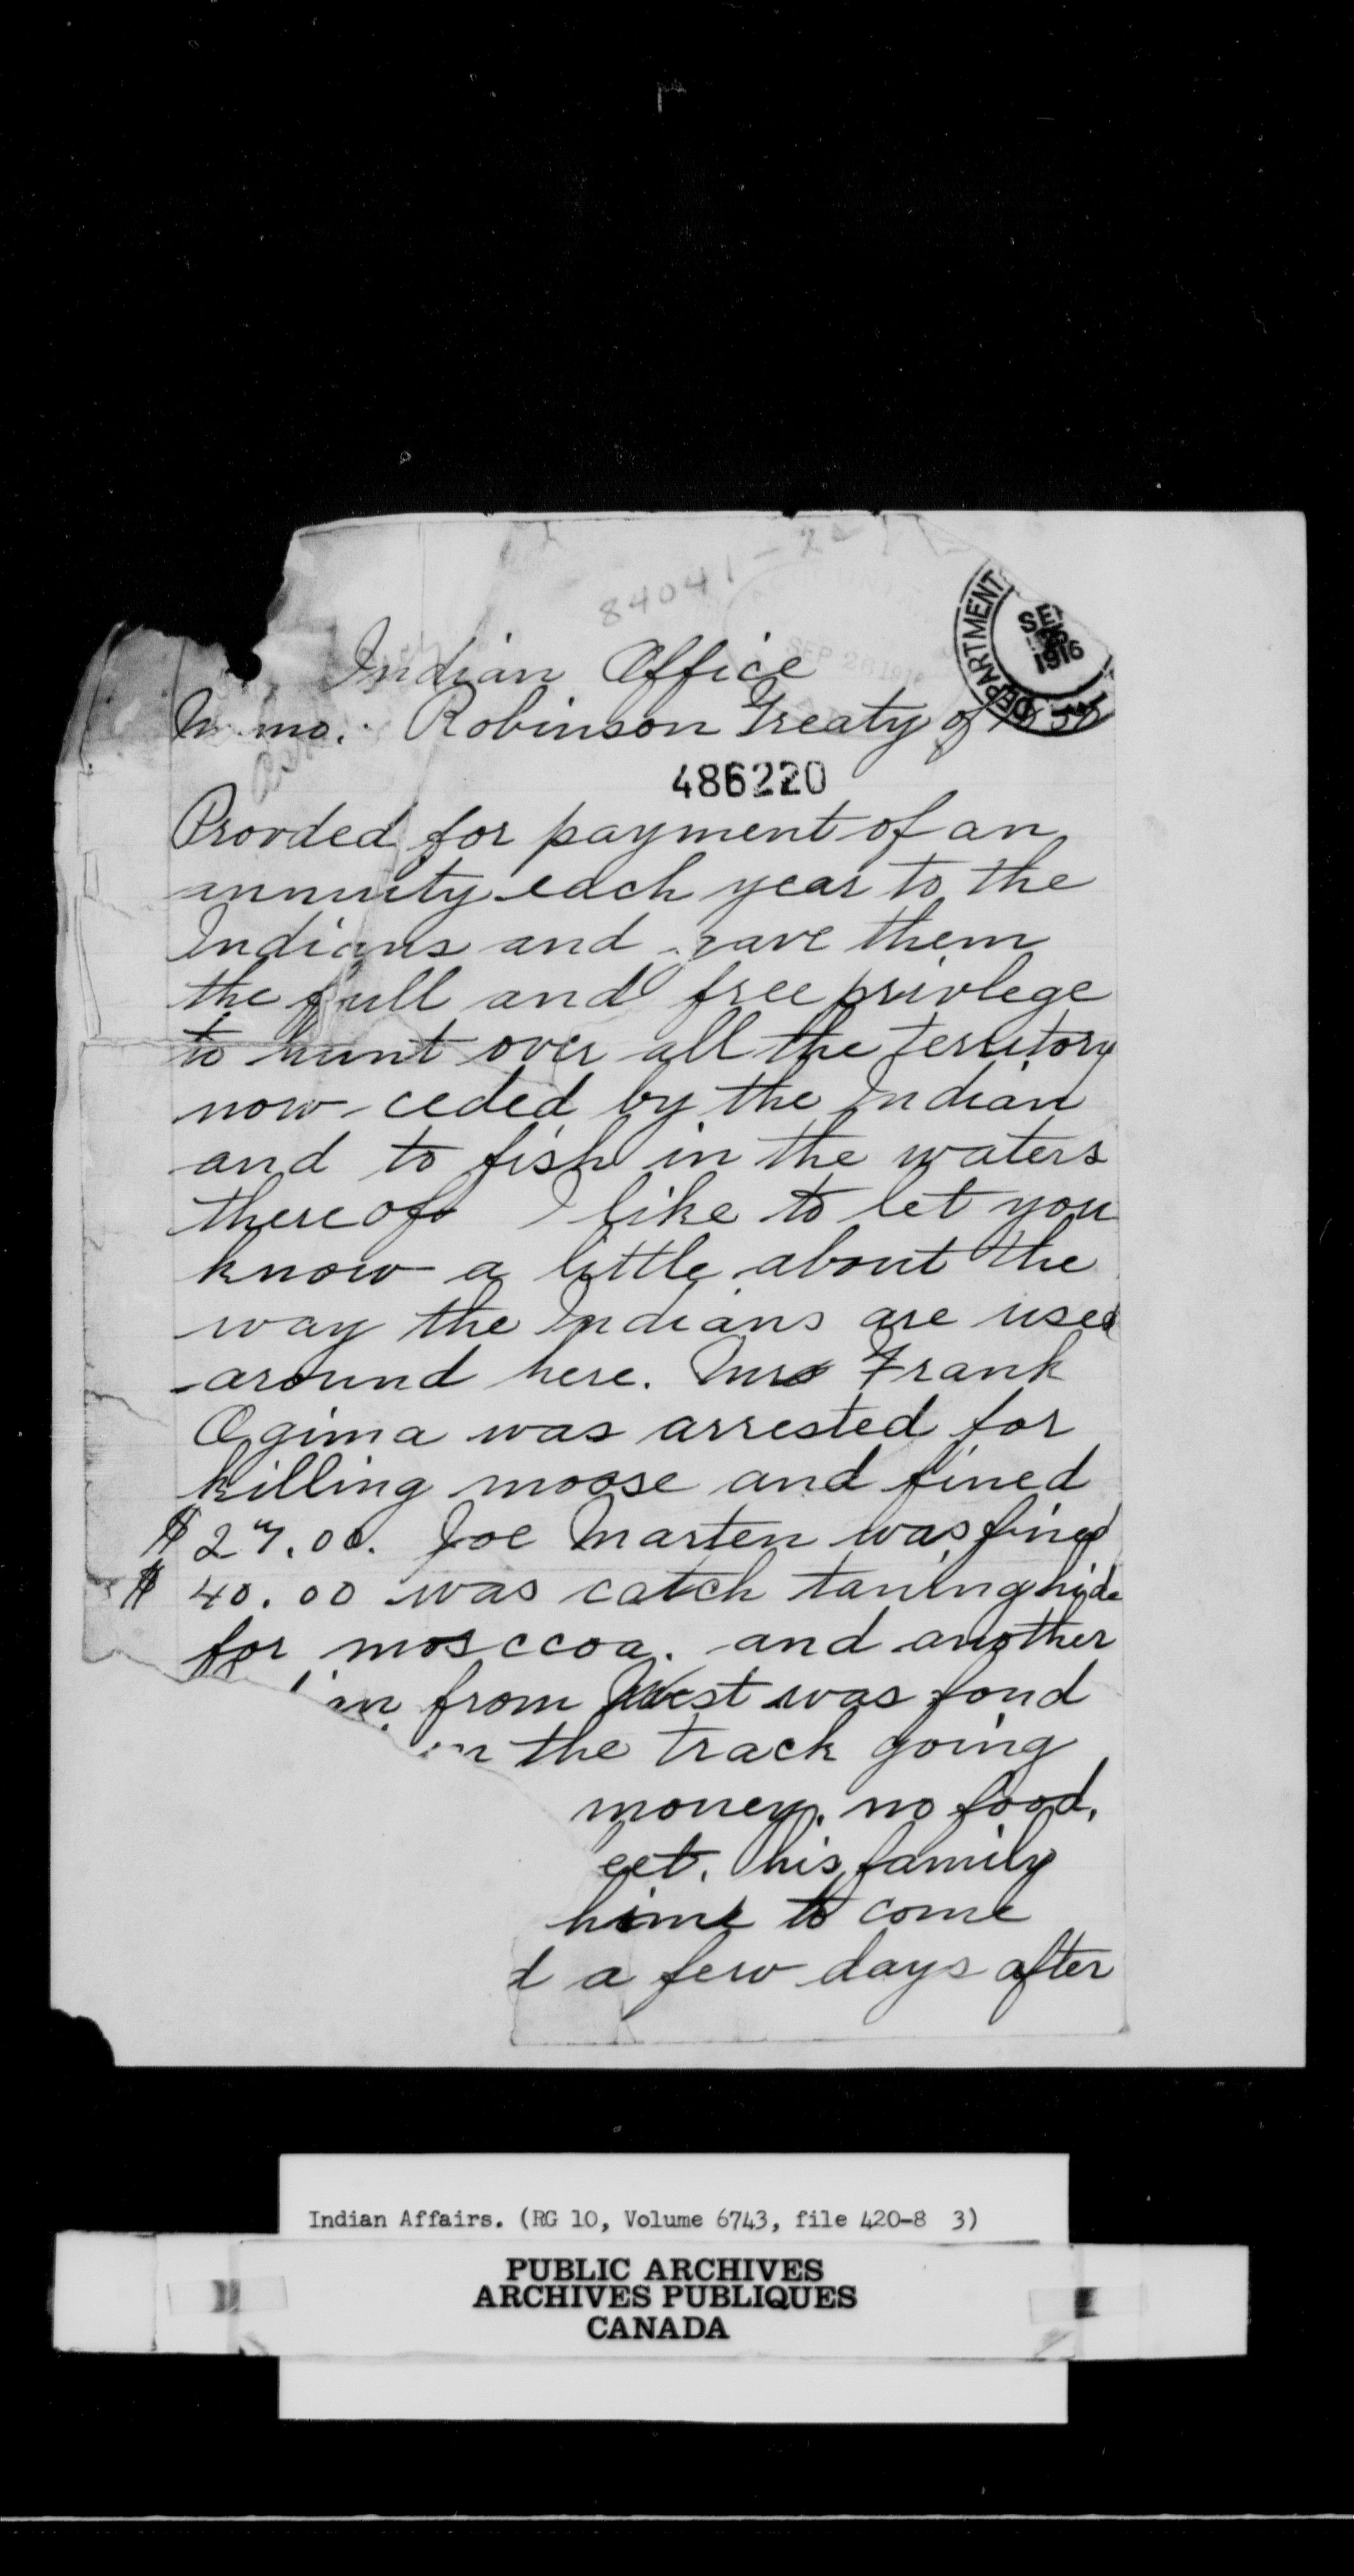 84041-2
DEPARTMENT
SEP 26 1916
SEP 26 191
Indian Office
Robinson Treaty of 1850
486220
Provded for payment of an
annuity each year to the
Indians and gave them
the full and free privlege
to hunt over all the territory
now ceded by the Indian
and to fish in the waters
thereof I like to let you
know a little about the
way the Indians are used
around here. Mrs Frank
Ogima was arrested for
killing moose and fined
$ 27.00. Joe Marten was fined
$ 40.00 was catch taning hide
for mosccoa. and another
from West was fond
the track going
money. no food.
eet. his family
hime to come
d a few days after
Indian Affairs. (RG 10, Volume 6743, file 420-8 3)
PUBLIC ARCHIVES
ARCHIVES PUBLIQUES
CANADA